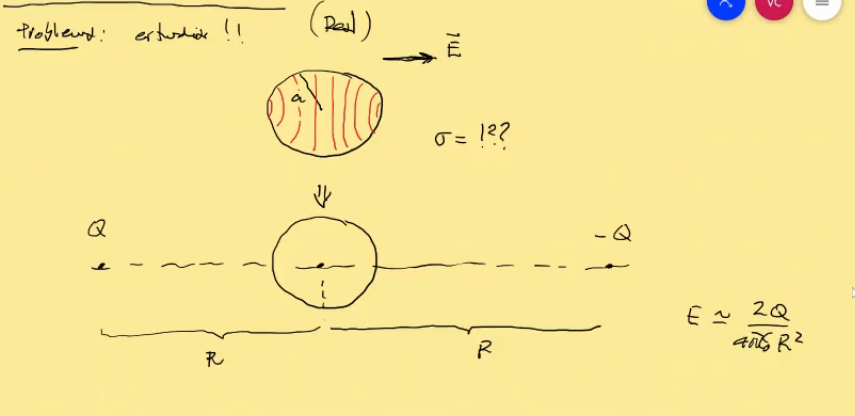 Problema: estudiar !! (Deal)
E⃗
a
σ = !??
⇓
Q
-Q
R
R
E ≃ 2Q / 4πε₀ R²
VC